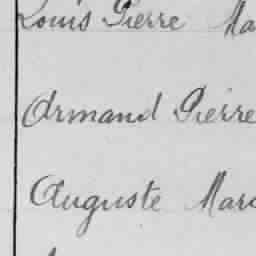 Louis Pierre Ma
Armand Pierre
Auguste Marc